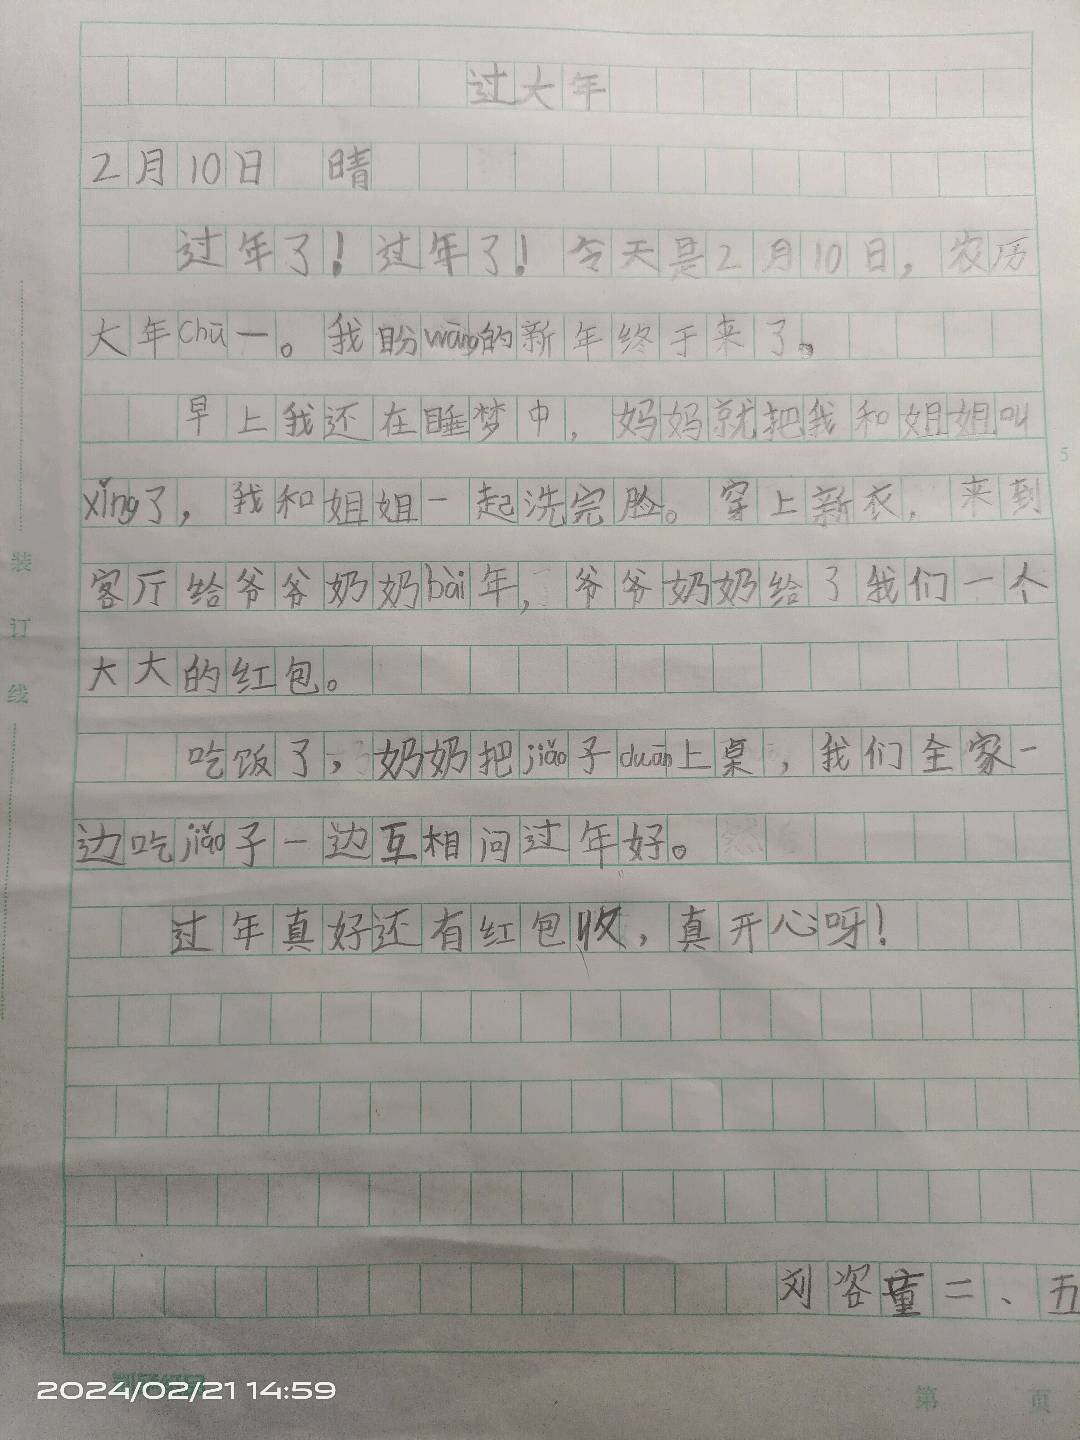 过大年
2月10日 晴
过年了！过年了！今天是2月10日，农历
大年chū一。我盼wàng的新年终于来了。
早上我还在睡梦中，妈妈就把我和姐姐叫
xǐng了，我和姐姐一起洗完脸。穿上新衣，来到
客厅给爷爷奶奶bài年，爷爷奶奶给了我们一个
大大的红包。
吃饭了，奶奶把jiǎo子duān上桌，我们全家一
边吃jiǎo子一边互相问过年好。
过年真好还有红包收，真开心呀！
刘容童二、五
装
订
线
5
第 页
2024/02/21 14:59